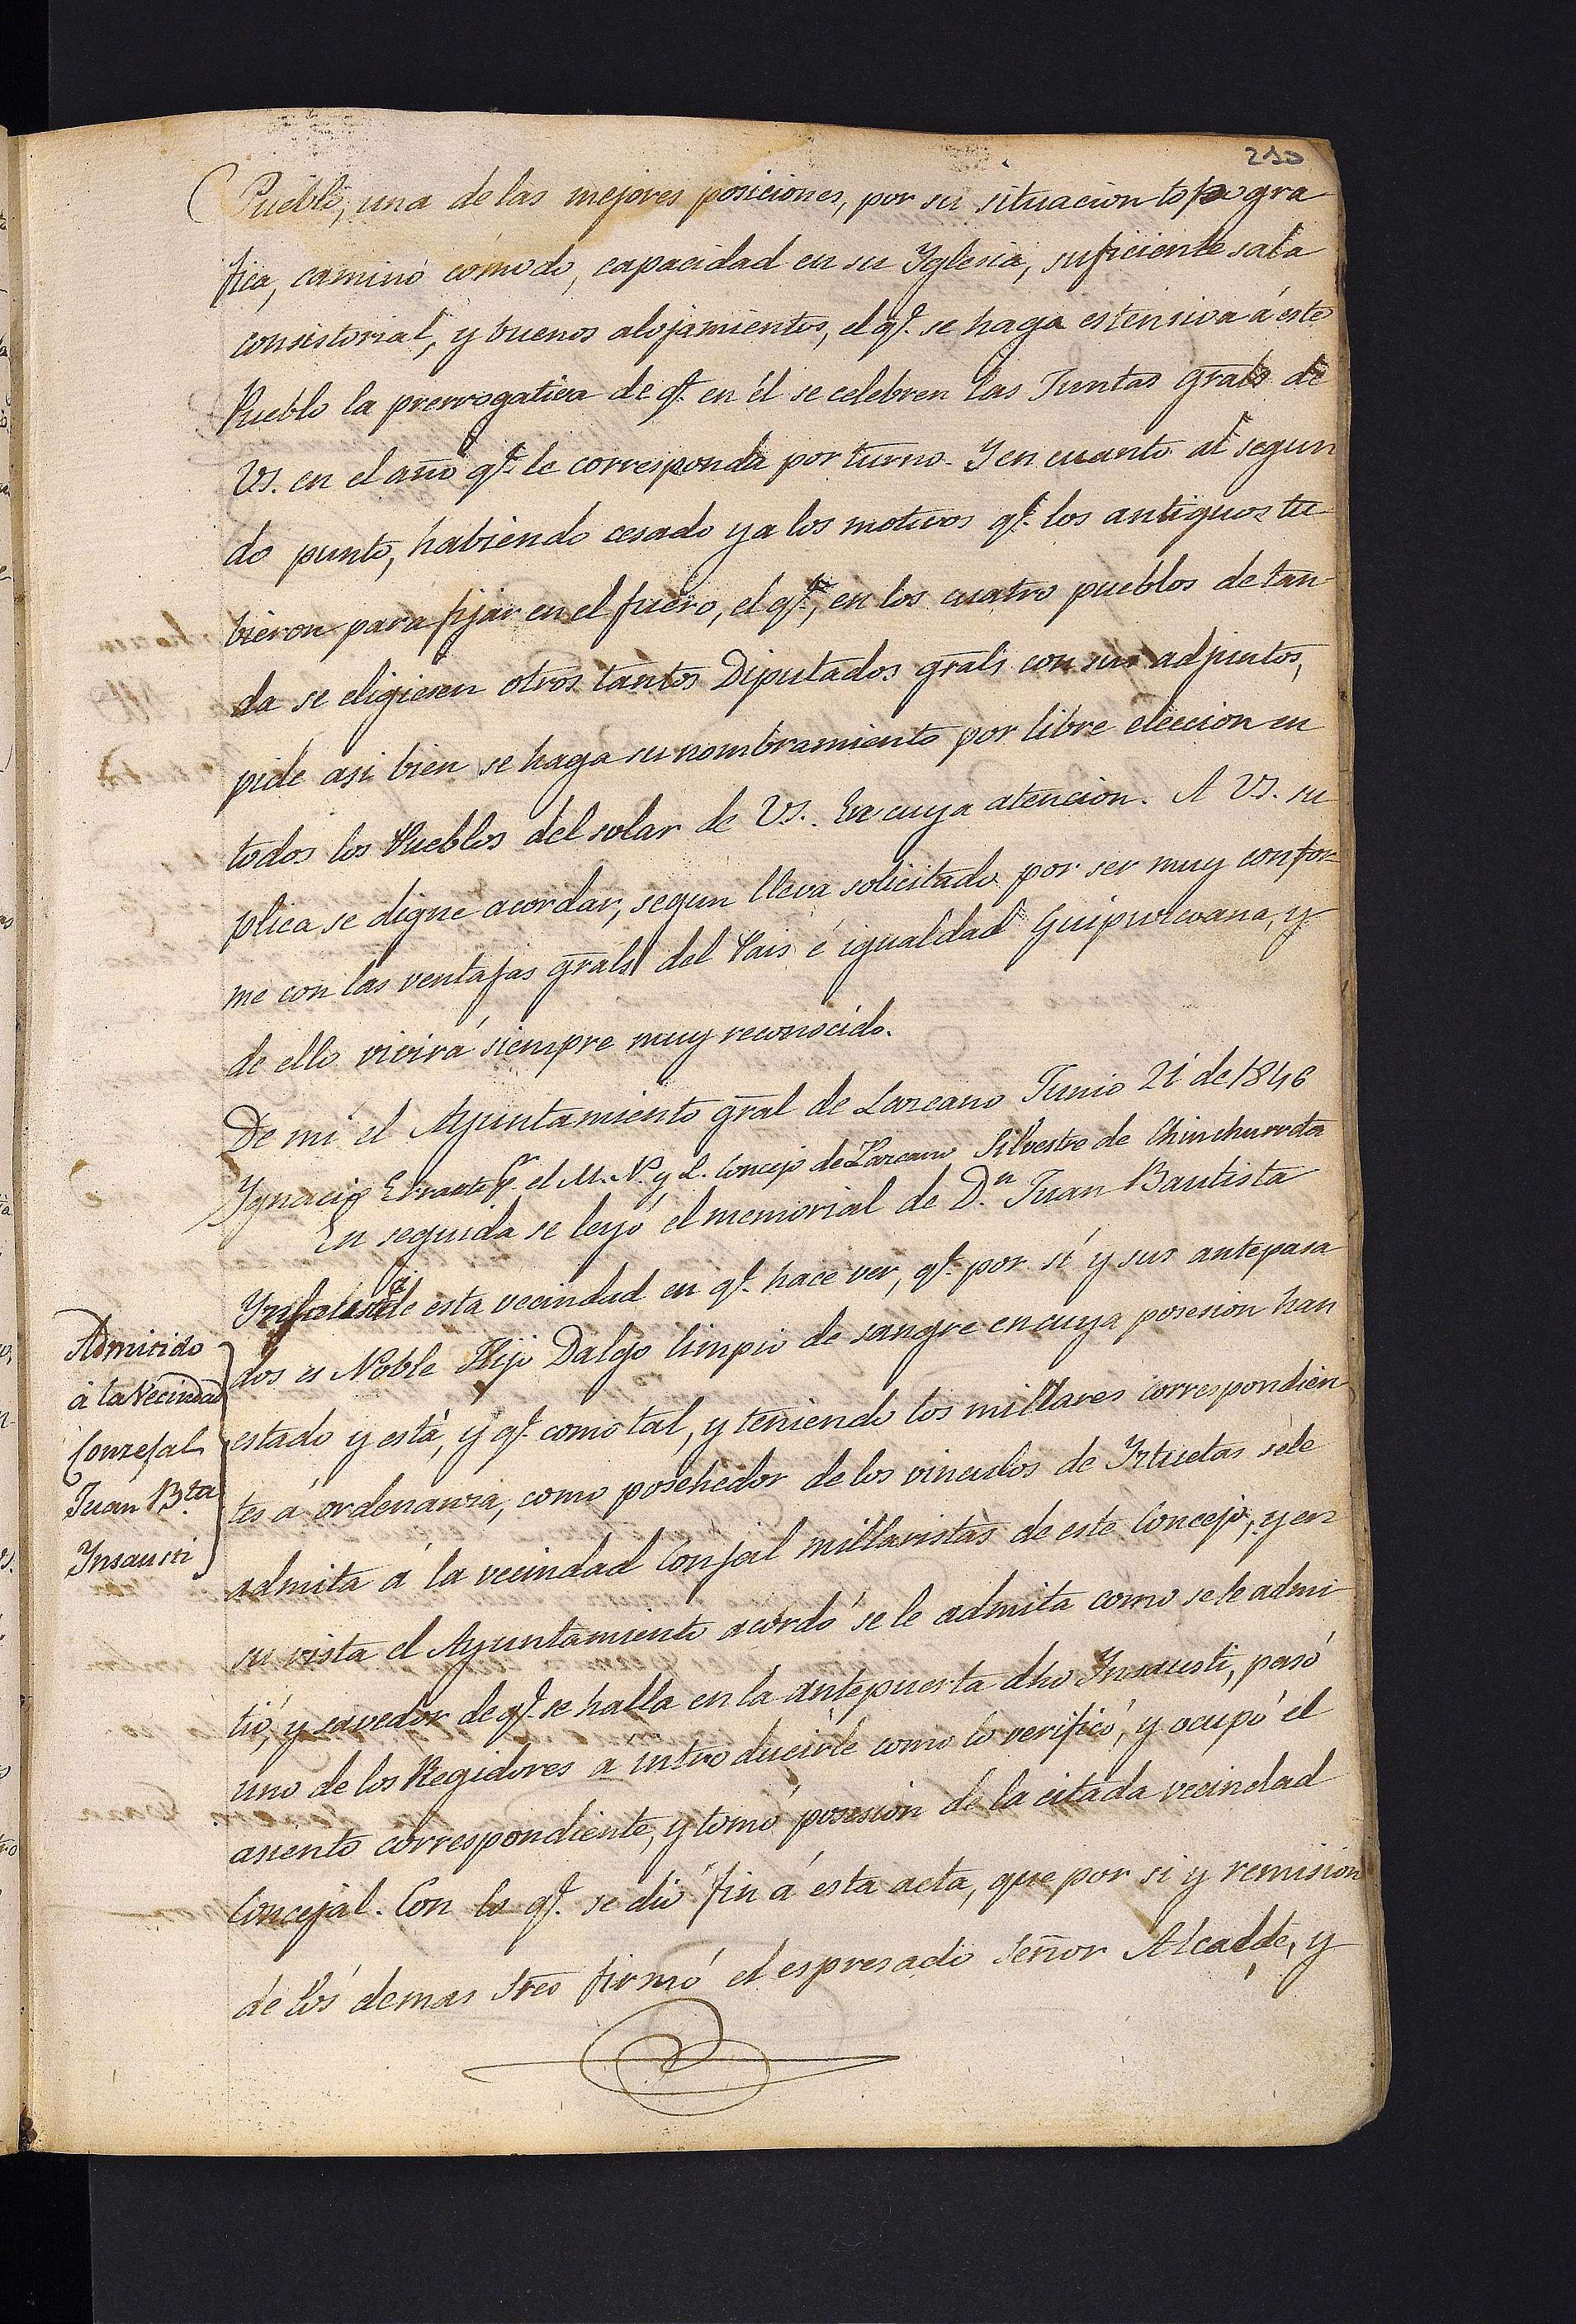 210
Pueblo, una de las mejores posiciones, por su situacion topogra
fica, camino cómodo, capacidad en su Yglesia, suficiente sala
consistorial, y buenos alojamientos, el qe. se haga estensiva á este
Pueblo la prerrogativa de qe. en él se celebren las Juntas grals de
VS. en el año qe. le corresponda por turno. Y en cuanto al segun
do punto, habiendo cesado ya los motivos qe. los antiguos tu
bieron para fijar en el fuero, el qe., en los cuatro pueblos de tan
da se eligiesen otros tantos Diputados grals con sus adjuntos,
pide asi bien se haga su nombramiento por libre eleccion en
todos los Pueblos del solar de VS. En cuya atencion. A VS. su
plica se digne acordar, segun lleva solicitado por ser muy confor
me con las ventajas grals del Pais é igualdad Guipuzcoana, y
de ello vivirá siempre muy reconocido.
De mi el Ayuntamiento gral de Lazcano Junio 21 de 1846
Ygnacio Pr. el M. N. y L. Concejo de Lazcano Silvestre de Chinchurreta
En seguida se leyó el memorial de Dn. Juan Bautista
de esta vecindad en qe. hace ver, qe. por sí y sus antepasa
dos es Noble Hijo Dalgo limpio de sangre en cuya posesion han
estado y está, y qe. como tal, y teniendo los millares correspondien
tes á ordenanza, como posehedor de los vinculos de Yztuetas sele
admita á la vecindad Conjeil millaristas de este Concejo, y en
su vista el Ayuntamiento acordó se le admita como se le admi
tió, y savedor de qe. se halla en la antepuerta dho Ynsausti, pasó
uno de los Regidores a introducirle como lo verificó, y ocupó el
asiento correspondiente, y tomó posesion de la citada vecindad
Concejal. Con lo qe. se dió fin á esta acta, que por si y remision
de los demas Sres firmó el espresado Señor Alcalde, y
Admitido
á la Vecindad
Conzejal
Juan Bta
Ynsausti